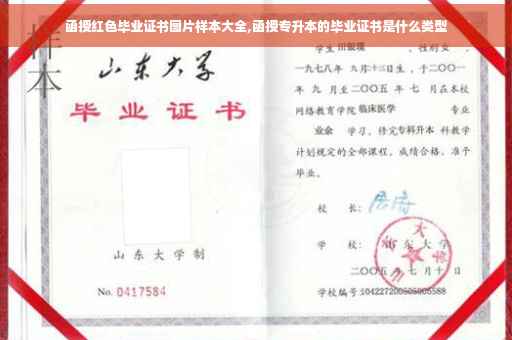 函授红色毕业证书图片样本大全,函授专升本的毕业证书是什么类型
样本
山东大学
毕业证书
山东大学制
No. 0417584
学生田银瑛 ,性别女 ,
一九七八年 九月十三日生,于二〇〇一
年 九 月至二〇〇五 年 七 月在本校
网络教育学院 临床医学 专业
业余 学习,修完专科升本 科教学
计划规定的全部课程,成绩合格,准予
毕业。
校 长:
学 校: 山东大学
二〇〇五年 七月十 日
学校编号:104227200505005588